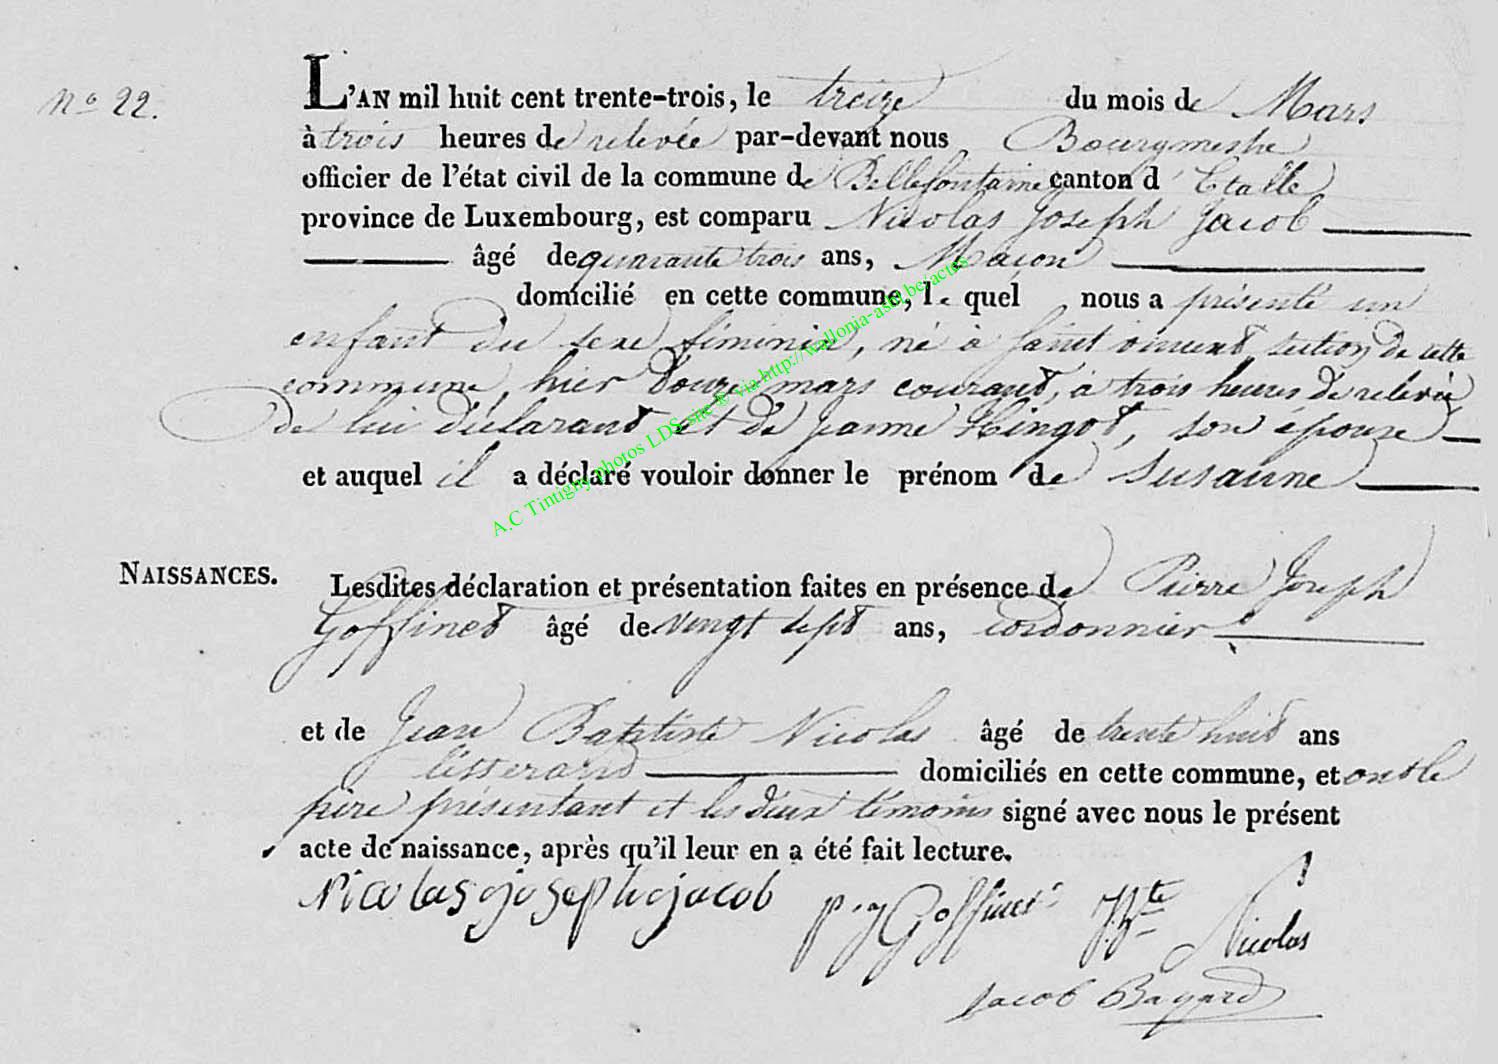 N° 22.
L'AN mil huit cent trente-trois, le treize du mois de Mars
à trois heures de relevée par-devant nous Bourgmestre
officier de l'état civil de la commune de Bellefontaine canton d'Etalle
province de Luxembourg, est comparu Nicolas Joseph Jacob
âgé de quarante trois ans, Maçon
domicilié en cette commune, le quel nous a présenté un
enfant du sexe féminin, né à saint vincent, section de cette
commune, hier douze mars courant, à trois heures de relevée
de lui déclarant et de Jeanne Hingot, son épouse
et auquel il a déclaré vouloir donner le prénom de Susanne
NAISSANCES.
Lesdites déclaration et présentation faites en présence de Pierre Joseph
Goffinet âgé de vingt sept ans, cordonnier
et de Jean Baptiste Nicolas âgé de trente huit ans
tisserand domiciliés en cette commune, et ont le
père présentant et les deux témoins signé avec nous le présent
acte de naissance, après qu'il leur en a été fait lecture.
Nicolas joseph jacob p. j Goffinet J. Bte Nicolas
Jacob Bayard
A.C Tintigny photos LDS site ® via http://wallonia-asbl.be/actes